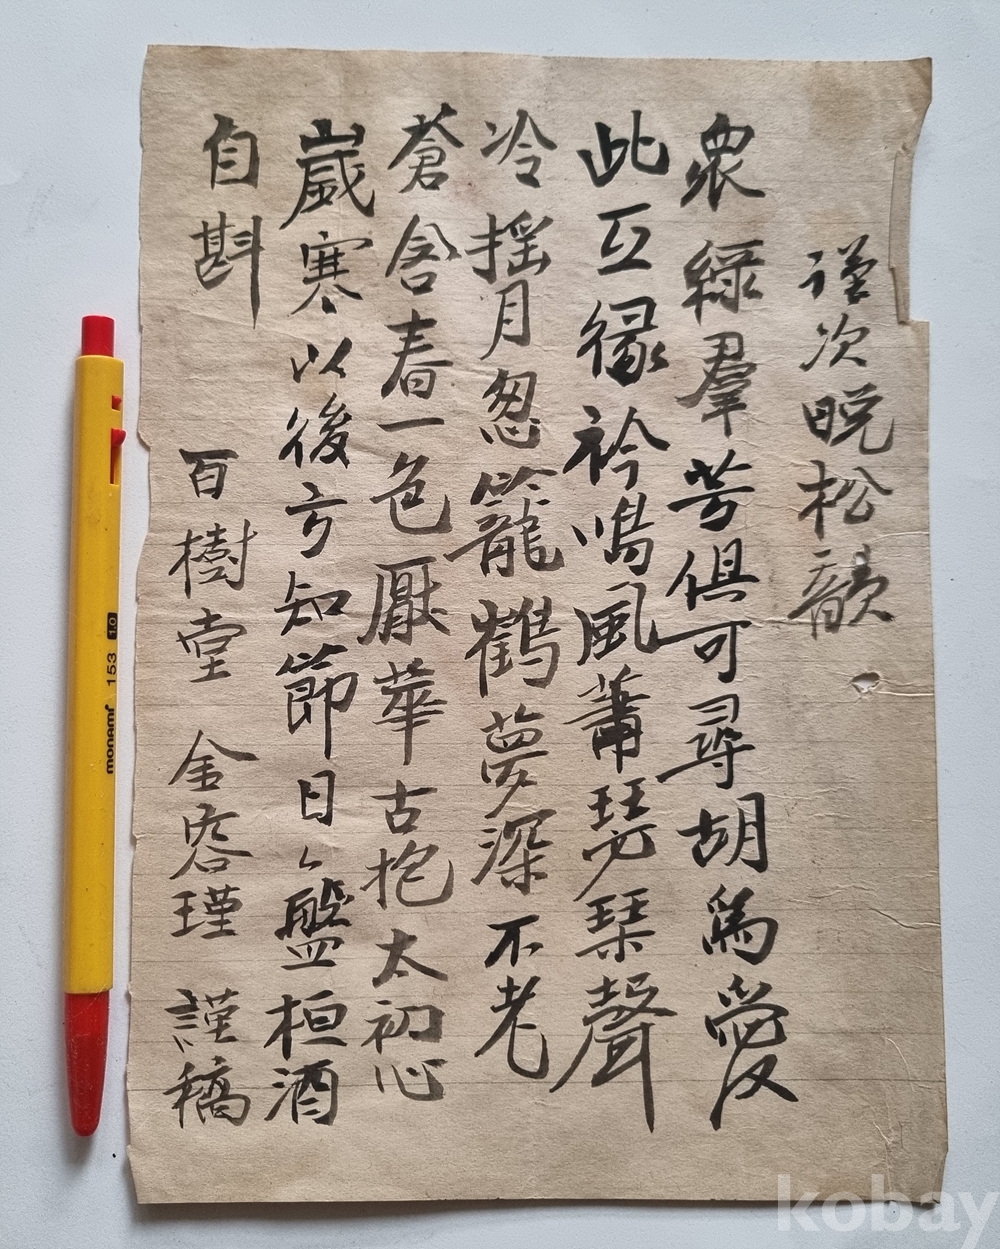 謹次晩松韻
衆綠羣芳俱可尋胡爲愛
此互緣衿鳴風蕭瑟琴聲
冷搖月葱籠鶴夢深不老
蒼含春一色厭華古抱太初心
歲寒以後方知節日々盤桓酒
自斟 百樹堂 金容瑾 謹稿
monami 153 1.0
kobay